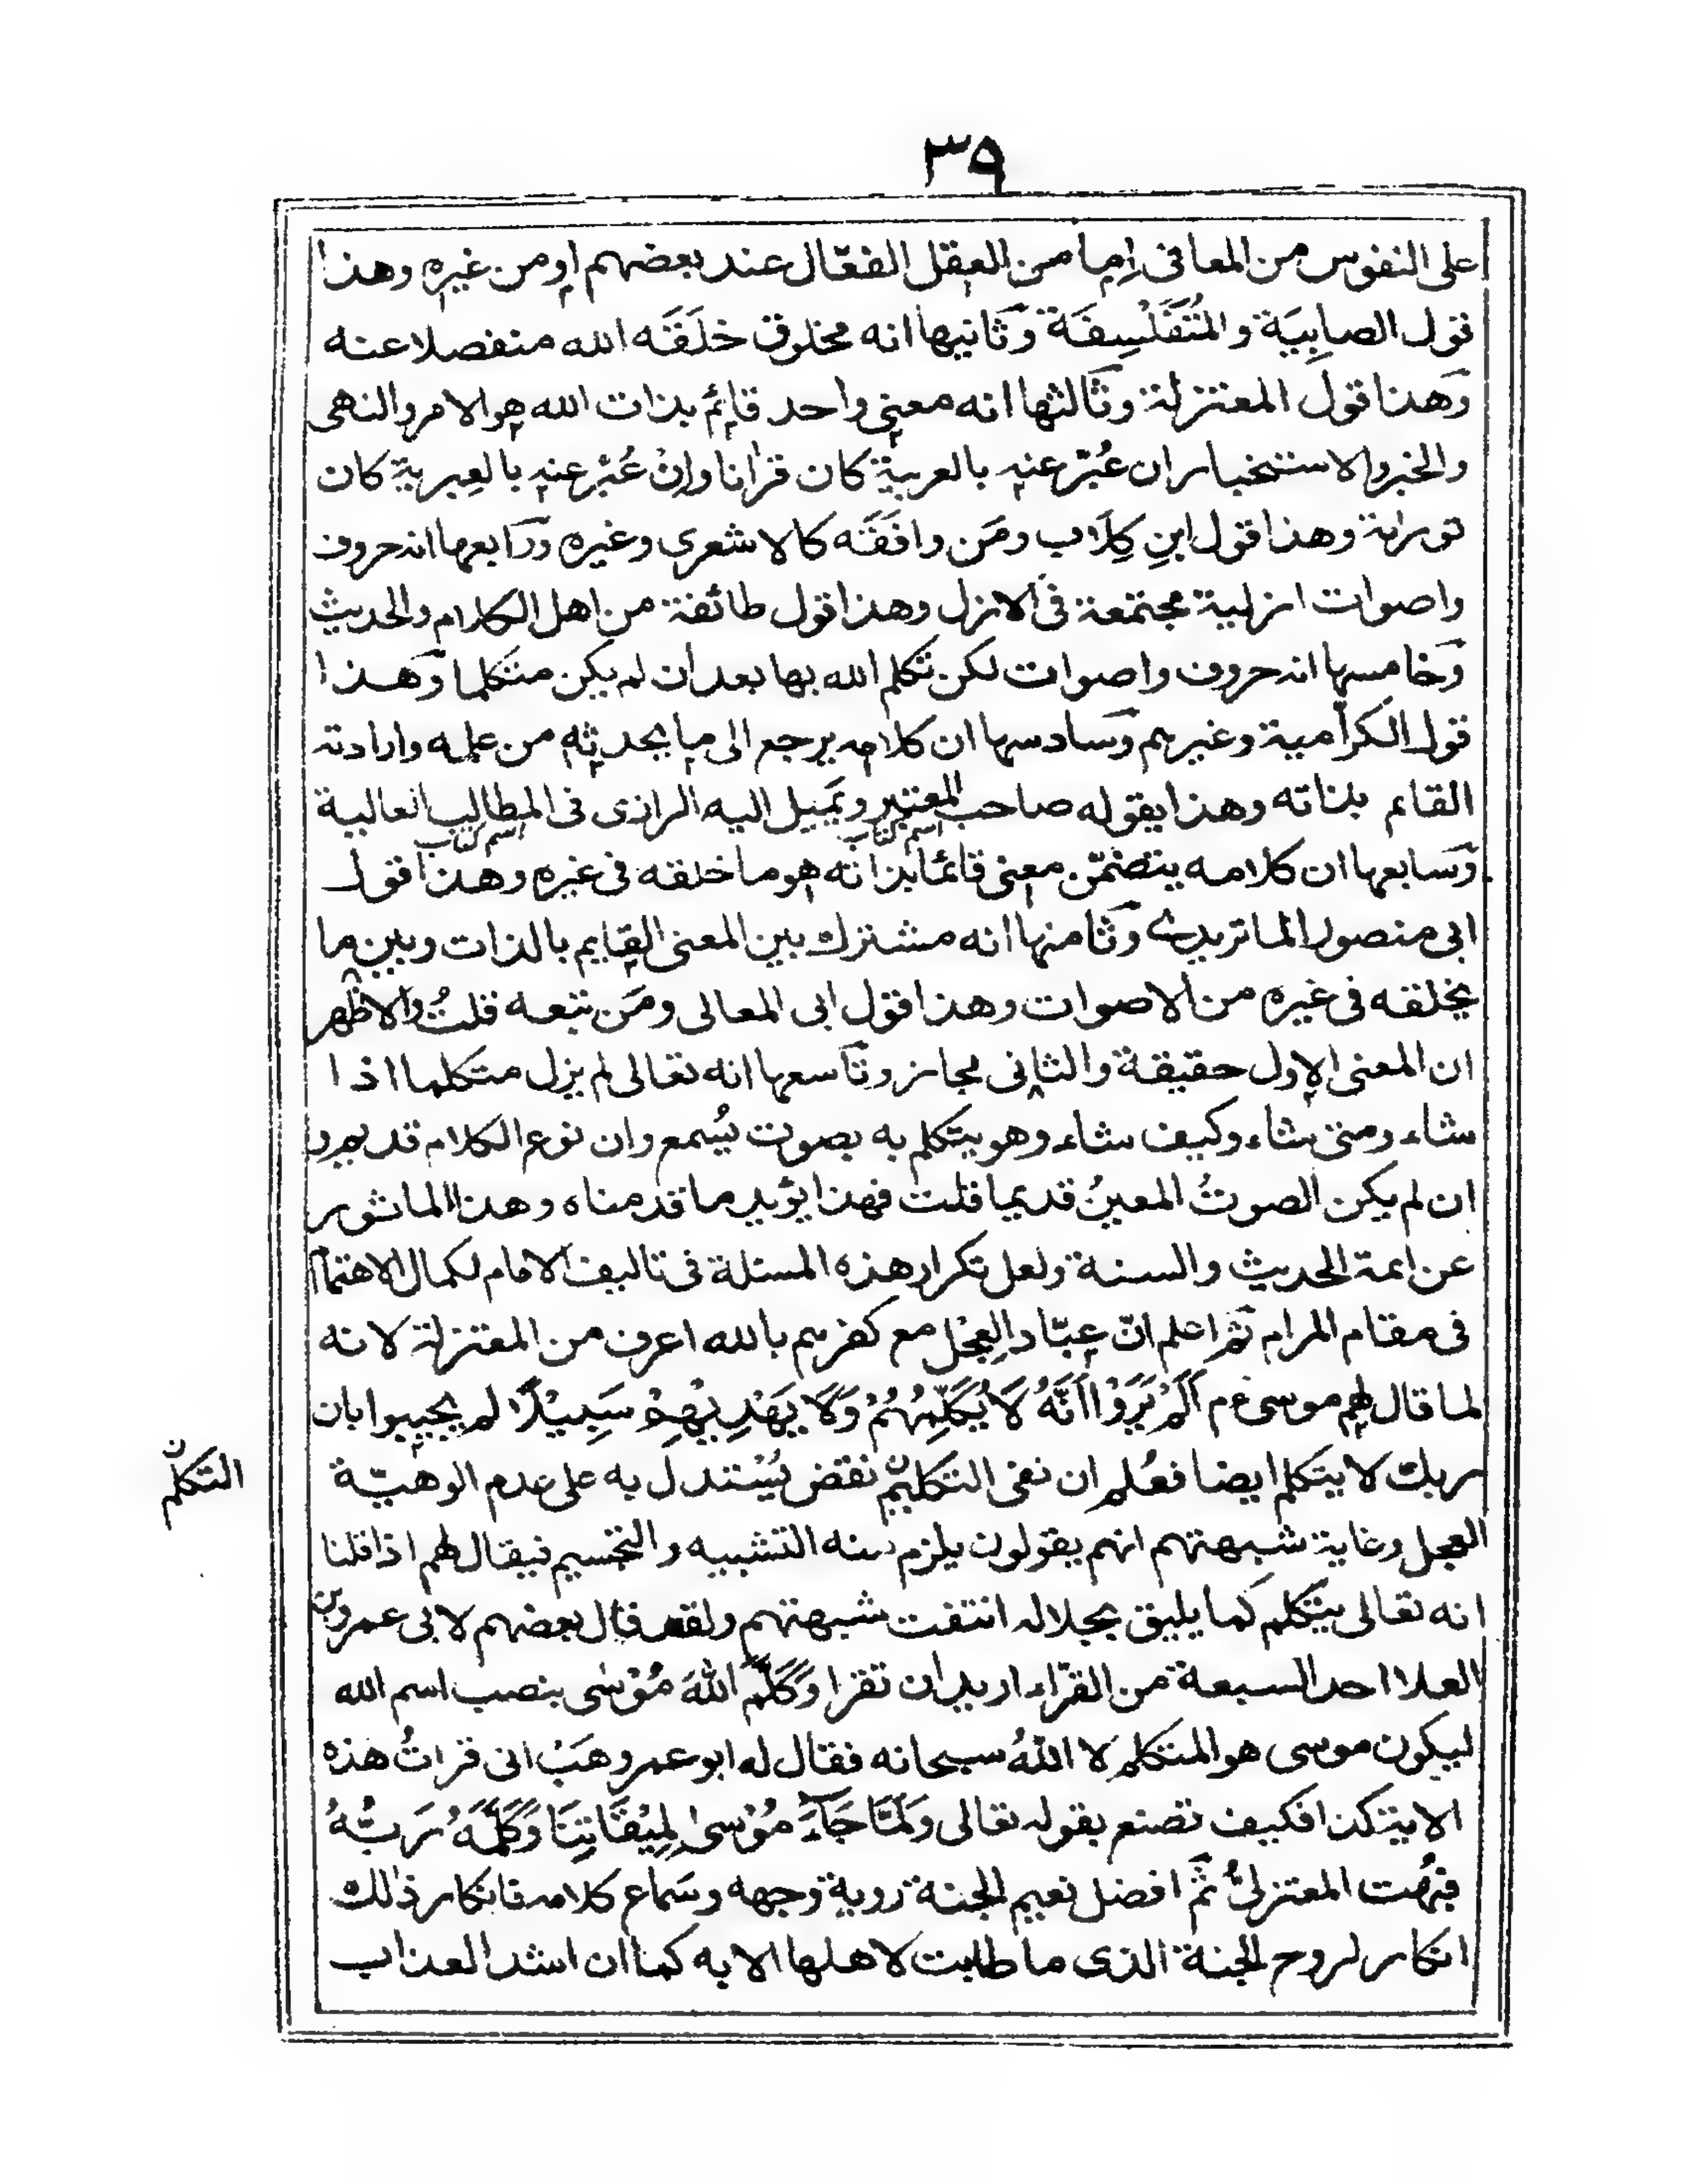 ٣٩
على النفوس من المعانى اما من العقل الفعّال عند بعضهم او من غيره وهذا
قول الصابِيَة والمُتَفَلْسِفَة وثانيها انه مخلوق خلَقَه الله منفصلا عنه
وهذا قول المعتزلة وثالثها انه معنى واحد قائم بذات الله هو الامر والنهى
والخبر والاستخبار ان عُبّر عنه بالعربية كان قرانا وان عُبّر عنه بالعبرية كان
توراىة وهذا قول ابن كِلَاب ومَن وافَقَه كالاشعرى وغيره ورابعها انه حروف
واصوات ازلية مجتمعة فى الازل وهذا قول طائفة من اهل الكلام والحديث
وخامسها انه حروف واصوات لكن تكلم الله بها بعد ان لم يكن متكلما وهذا
قول الكرامية وغيرهم وسادسها ان كلامه يرجع الى ما يحدثه من علمه وارادته
القائم بذاته وهذا يقوله صاحب المعتبر ويَميل اليه الرازى فى المطالب العالية
اسم كتاب اسم كتاب
وسابعها ان كلامه يتضمّن معنى قائما بذاته هو ما خلقه فى غيره وهذا قول
ابى منصور الماتريدے وثامنها انه مشترك بين المعنى القايم بالذات وبين ما
يخلقه فى غيره من الاصوات وهذا قول ابى المعالى ومَن تبعه قلتُ والاظهر
ان المعنى الاول حقيقة والثانى مجاز وتاسعها انه تعالى لم يزل متكلما اذا
شاء ومتى شاء وكيف شاء وهو يتكلم به بصوت يُسمع وان نوع الكلام قديم و
ان لم يكن الصوتُ المعينُ قديما قلت فهذا يؤيد ما قدمناه وهذا الماثور
عن ائمة الحديث والسنة ولعل تكرار هذه المسئلة فى تاليف الامام لكمال الاهتمام
فى مقام المرام ثم اعلم انّ عبّاد العِجْل مع كفرهم بالله اعرف من المعتزلة لانه
لما قال لهم موسى عم اَلَمْ يَرَوْا اَنَّهُ لَا يُكَلِّمُهُمْ وَلَا يَهْدِيْهِمْ سَبِيْلًا لم يجيبوا بان
ربك لا يتكلم ايضا فعُلم ان نفى التكليم نقض يُسْتدل به على عدم الوهيّة
التكلّم ن
العجل وغاية شبهتهم انهم يقولون يلزم منه التشبيه والتجسيم فيقال لهم اذا قلنا
انه تعالى يتكلم كما يليق بجلاله انتفت شبهتهم ولقد قال بعضهم لابى عمرو بن
العلا احد السبعة من القرّاء اريد ان تقرا وَكَلَّمَ اللهَ مُوْسٰى بنصب اسم الله
ليكون موسى هو المتكلم لا اللهُ سبحانه فقال له ابو عمرو هَبْ انى قراتُ هذه
الاية كذا فكيف تصنع بقوله تعالى وَلَمَّا جَآءَ مُوْسٰى لِمِيْقَاتِنَا وَكَلَّمَهُ رَبُّهُ
فبُهت المعتزلىُّ ثم افضل نعيم الجنة روية وجهه وسَماع كلامه فانكار ذٰلك
انكار لروح الجنة الذى ما طابت لاهلها الا به كما ان اشد العذاب